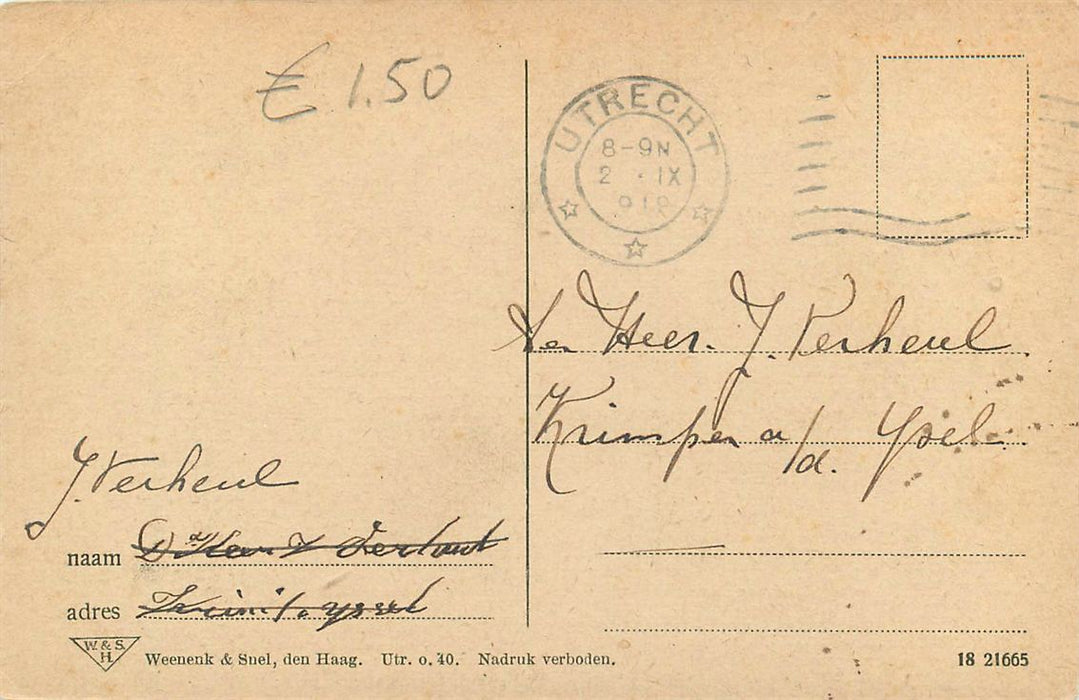 € 1.50
UTRECHT
8-9N
2 . IX
918
den Heer. J. Verheul.
Krimpen a/d. Ysel.
J. Verheul
naam
adres
W. & S.
H.
Weenenk & Snel, den Haag. Utr. o. 40. Nadruk verboden.
18 21665